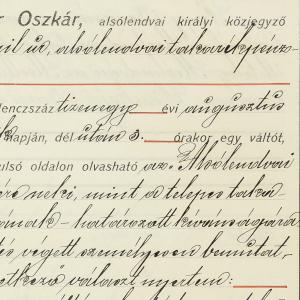 r Oszkár, alsólendvai királyi közjegyző
úr, alsólendvai takarékpénz-
lenczszáz tizenegy évi augusztus
napján, dél után 3. órakor egy váltót,
ulsó oldalon olvasható az Alsólendvai
neki, mint a telepes taka-
határozott kívánságára
végett személyesen bemutat-
választ nyertem: